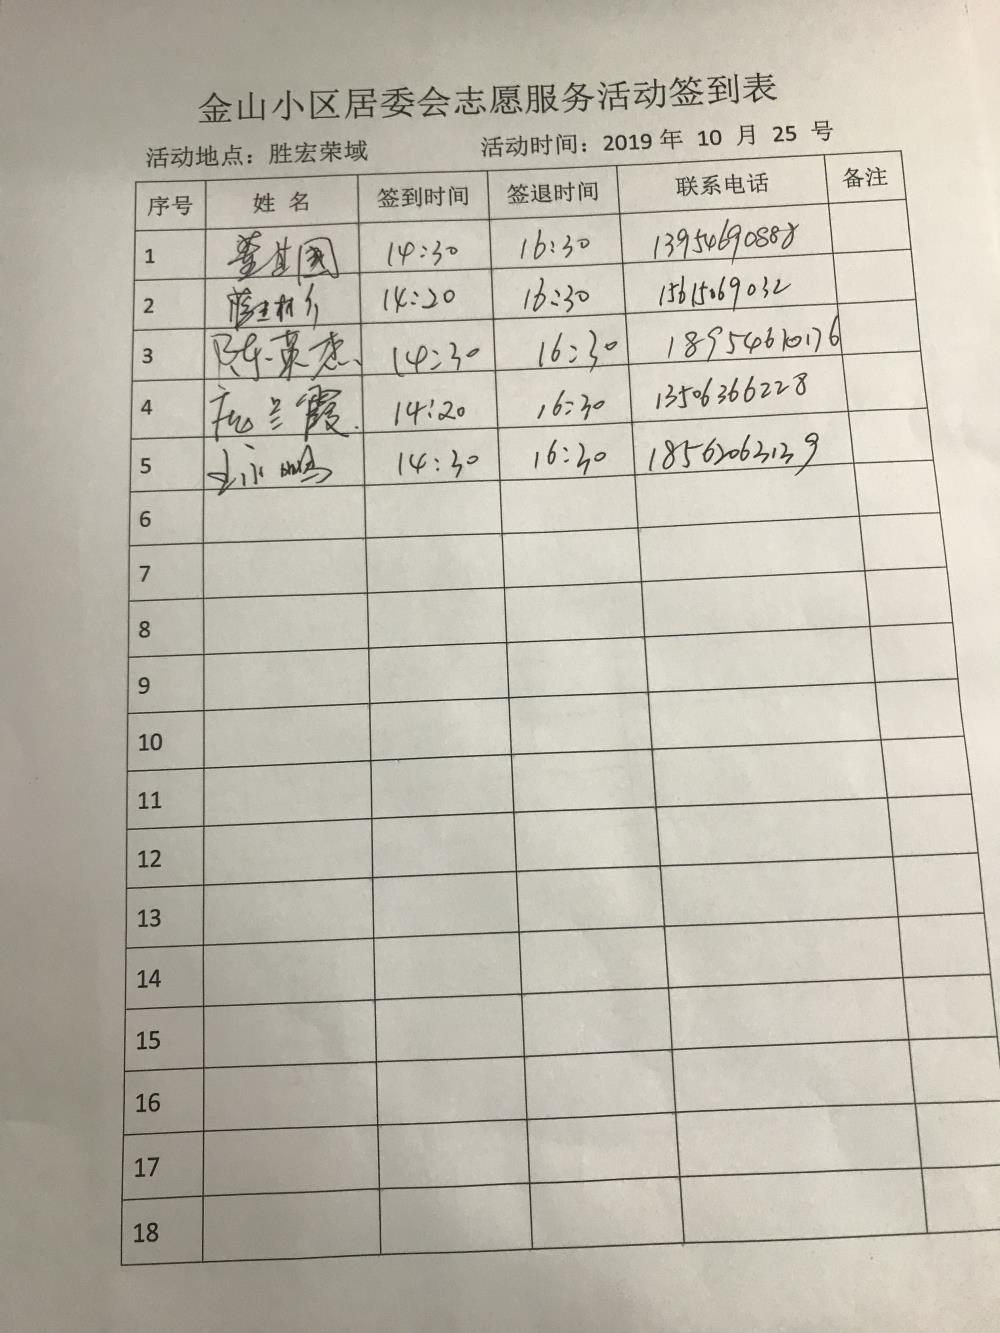 金山小区居委会志愿服务活动签到表
活动地点：胜宏荣域 活动时间：2019 年 10 月 25 号
序号 姓名 签到时间 签退时间 联系电话 备注
1 董其国 14:30 16:30 13954690888
2 14:20 16:30 15615069032
3 陈英杰 14:30 16:30 18954610176
4 庞兰霞 14:20 16:30 13506366228
5 王永鸣 14:30 16:30
6
7
8
9
10
11
12
13
14
15
16
17
18